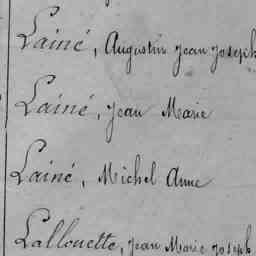 Lainé, Augustin Jean Joseph
Lainé, Jean Marie
Lainé, Michel Anne
Lallouette, Jean Marie Joseph